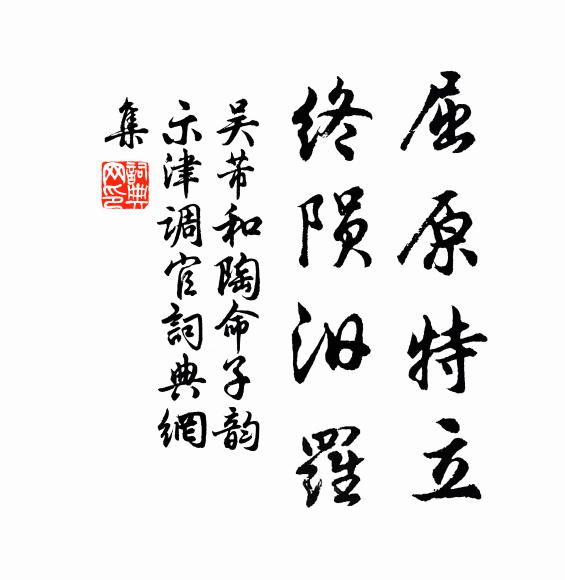 屈原特立
终陨汨羅
吴芾和陶命子韵
示津调官詞典網
集
詞典網印